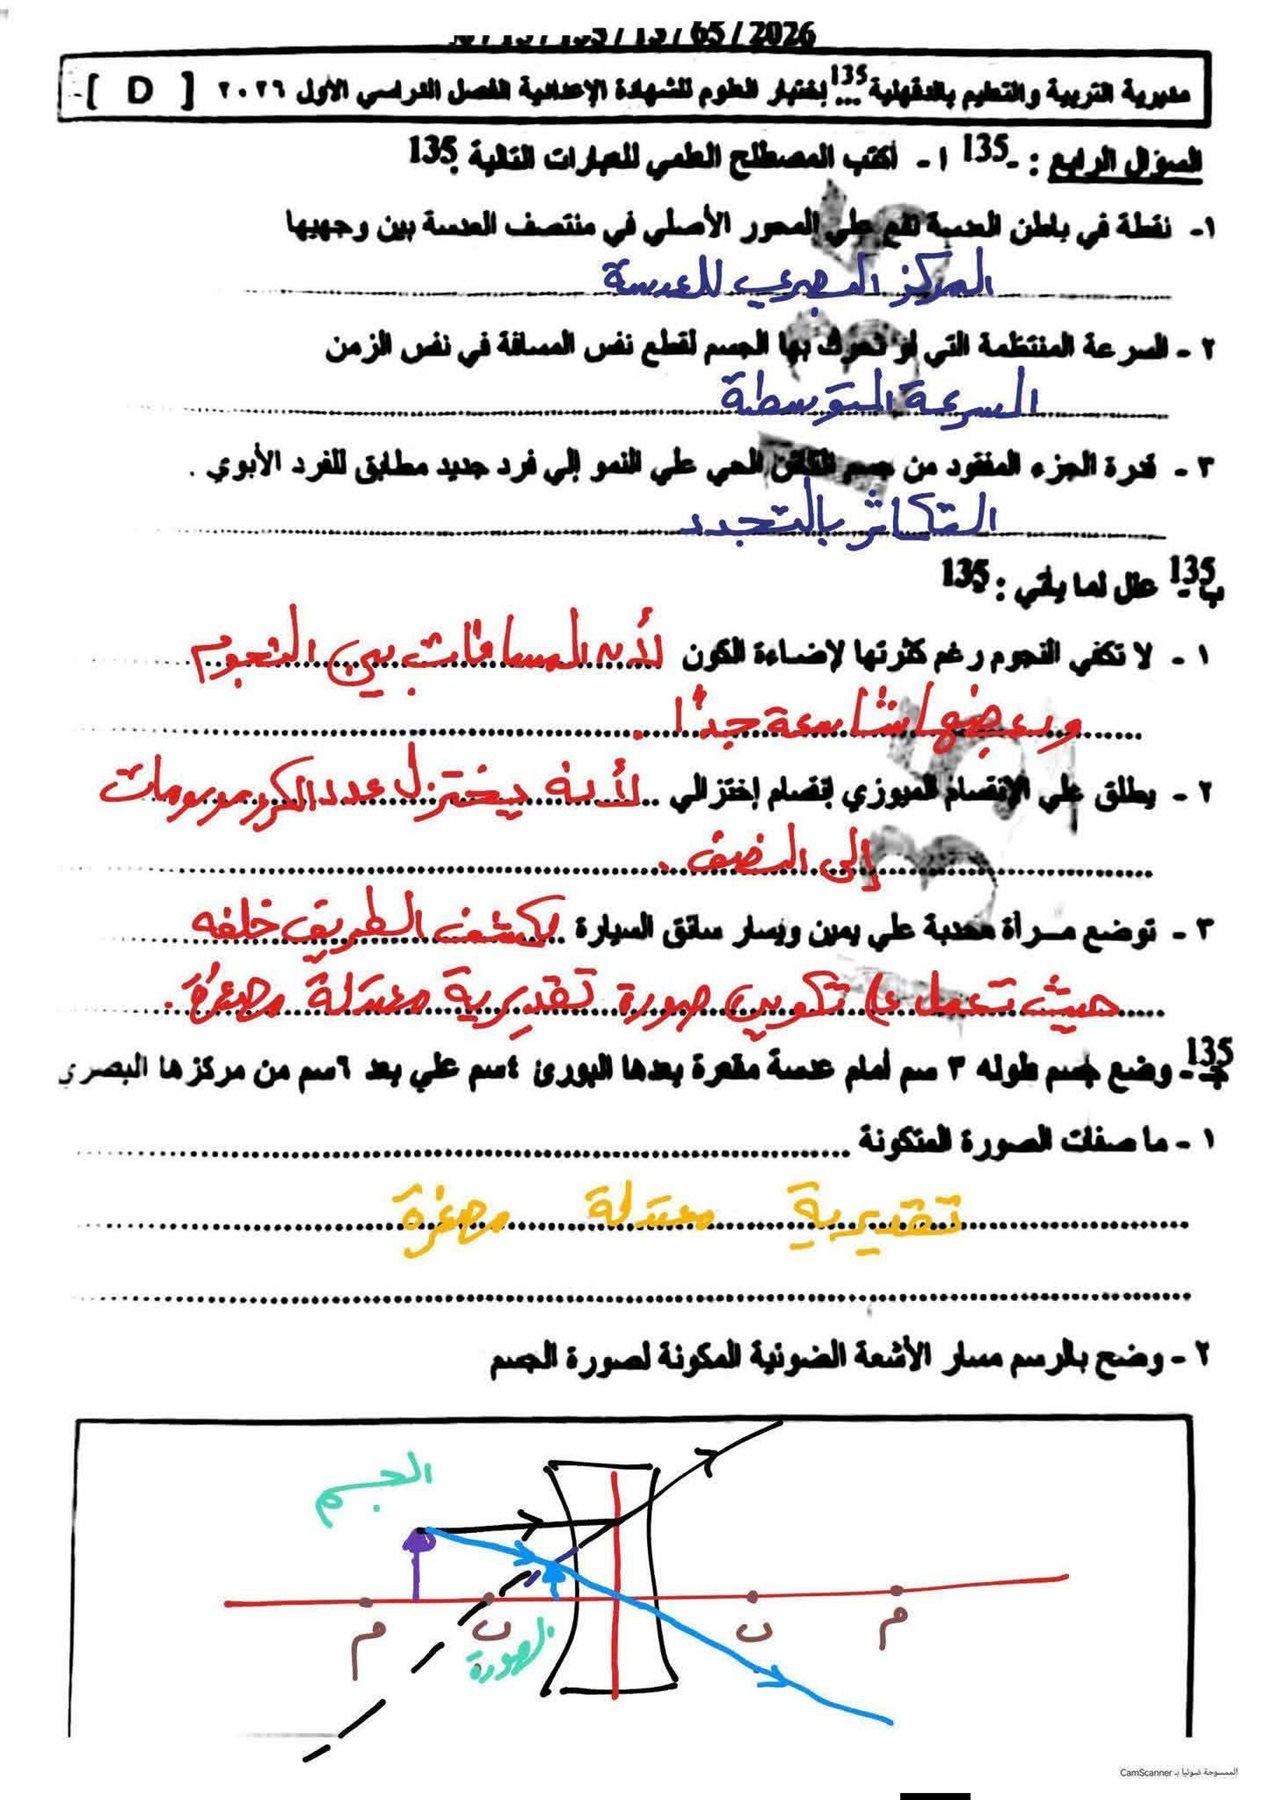 135 / 13 / 65 / 2026
مديرية التربية والتعليم بالدقهلية 135... إختبار العلوم للشهادة الإعدادية الفصل الدراسي الأول ٢٠٢٦ [ D ]
السؤال الرابع : - 135 ١ - أكتب المصطلح العلمي للعبارات التالية 135.
١- نقطة في باطن العدسة تقع علي المحور الأصلي في منتصف العدسة بين وجهيها
المركز البصري للعدسة
٢ - السرعة المنتظمة التي لو تحرك بها الجسم لقطع نفس المسافة في نفس الزمن
السرعة المتوسطة
٣ - قدرة الجزء المفقود من جسم الكائن الحي علي النمو إلي فرد جديد مطابق للفرد الأبوي .
التكاثر بالتجدد
135 ب - علل لما يأتي : 135
١ - لا تكفي النجوم رغم كثرتها لإضاءة الكون لأن المسافات بين النجوم
وبعضها شاسعة جدًا .
٢ - يطلق علي الإنقسام الميوزي إنقسام إختزالي لأنه يختزل عدد الكروموسومات
إلى النصف .
٣ - توضع مرأة محدبة علي يمين ويسار سائق السيارة لكشف الطريق خلفه
حيث تعمل على تكوين صورة تقديرية معتدلة مصغرة .
135 جـ - وضع جسم طوله ٣ سم أمام عدسة مقعرة بعدها البورئ ٤سم علي بعد ٦سم من مركزها البصري
١ - ما صفات الصورة المتكونة
تقديرية معتدلة مصغرة
٢ - وضح بالرسم مسار الأشعة الضوئية المكونة لصورة الجسم
الجسم
م ب ب م
الصورة
الممسوحة ضوئيا بـ CamScanner